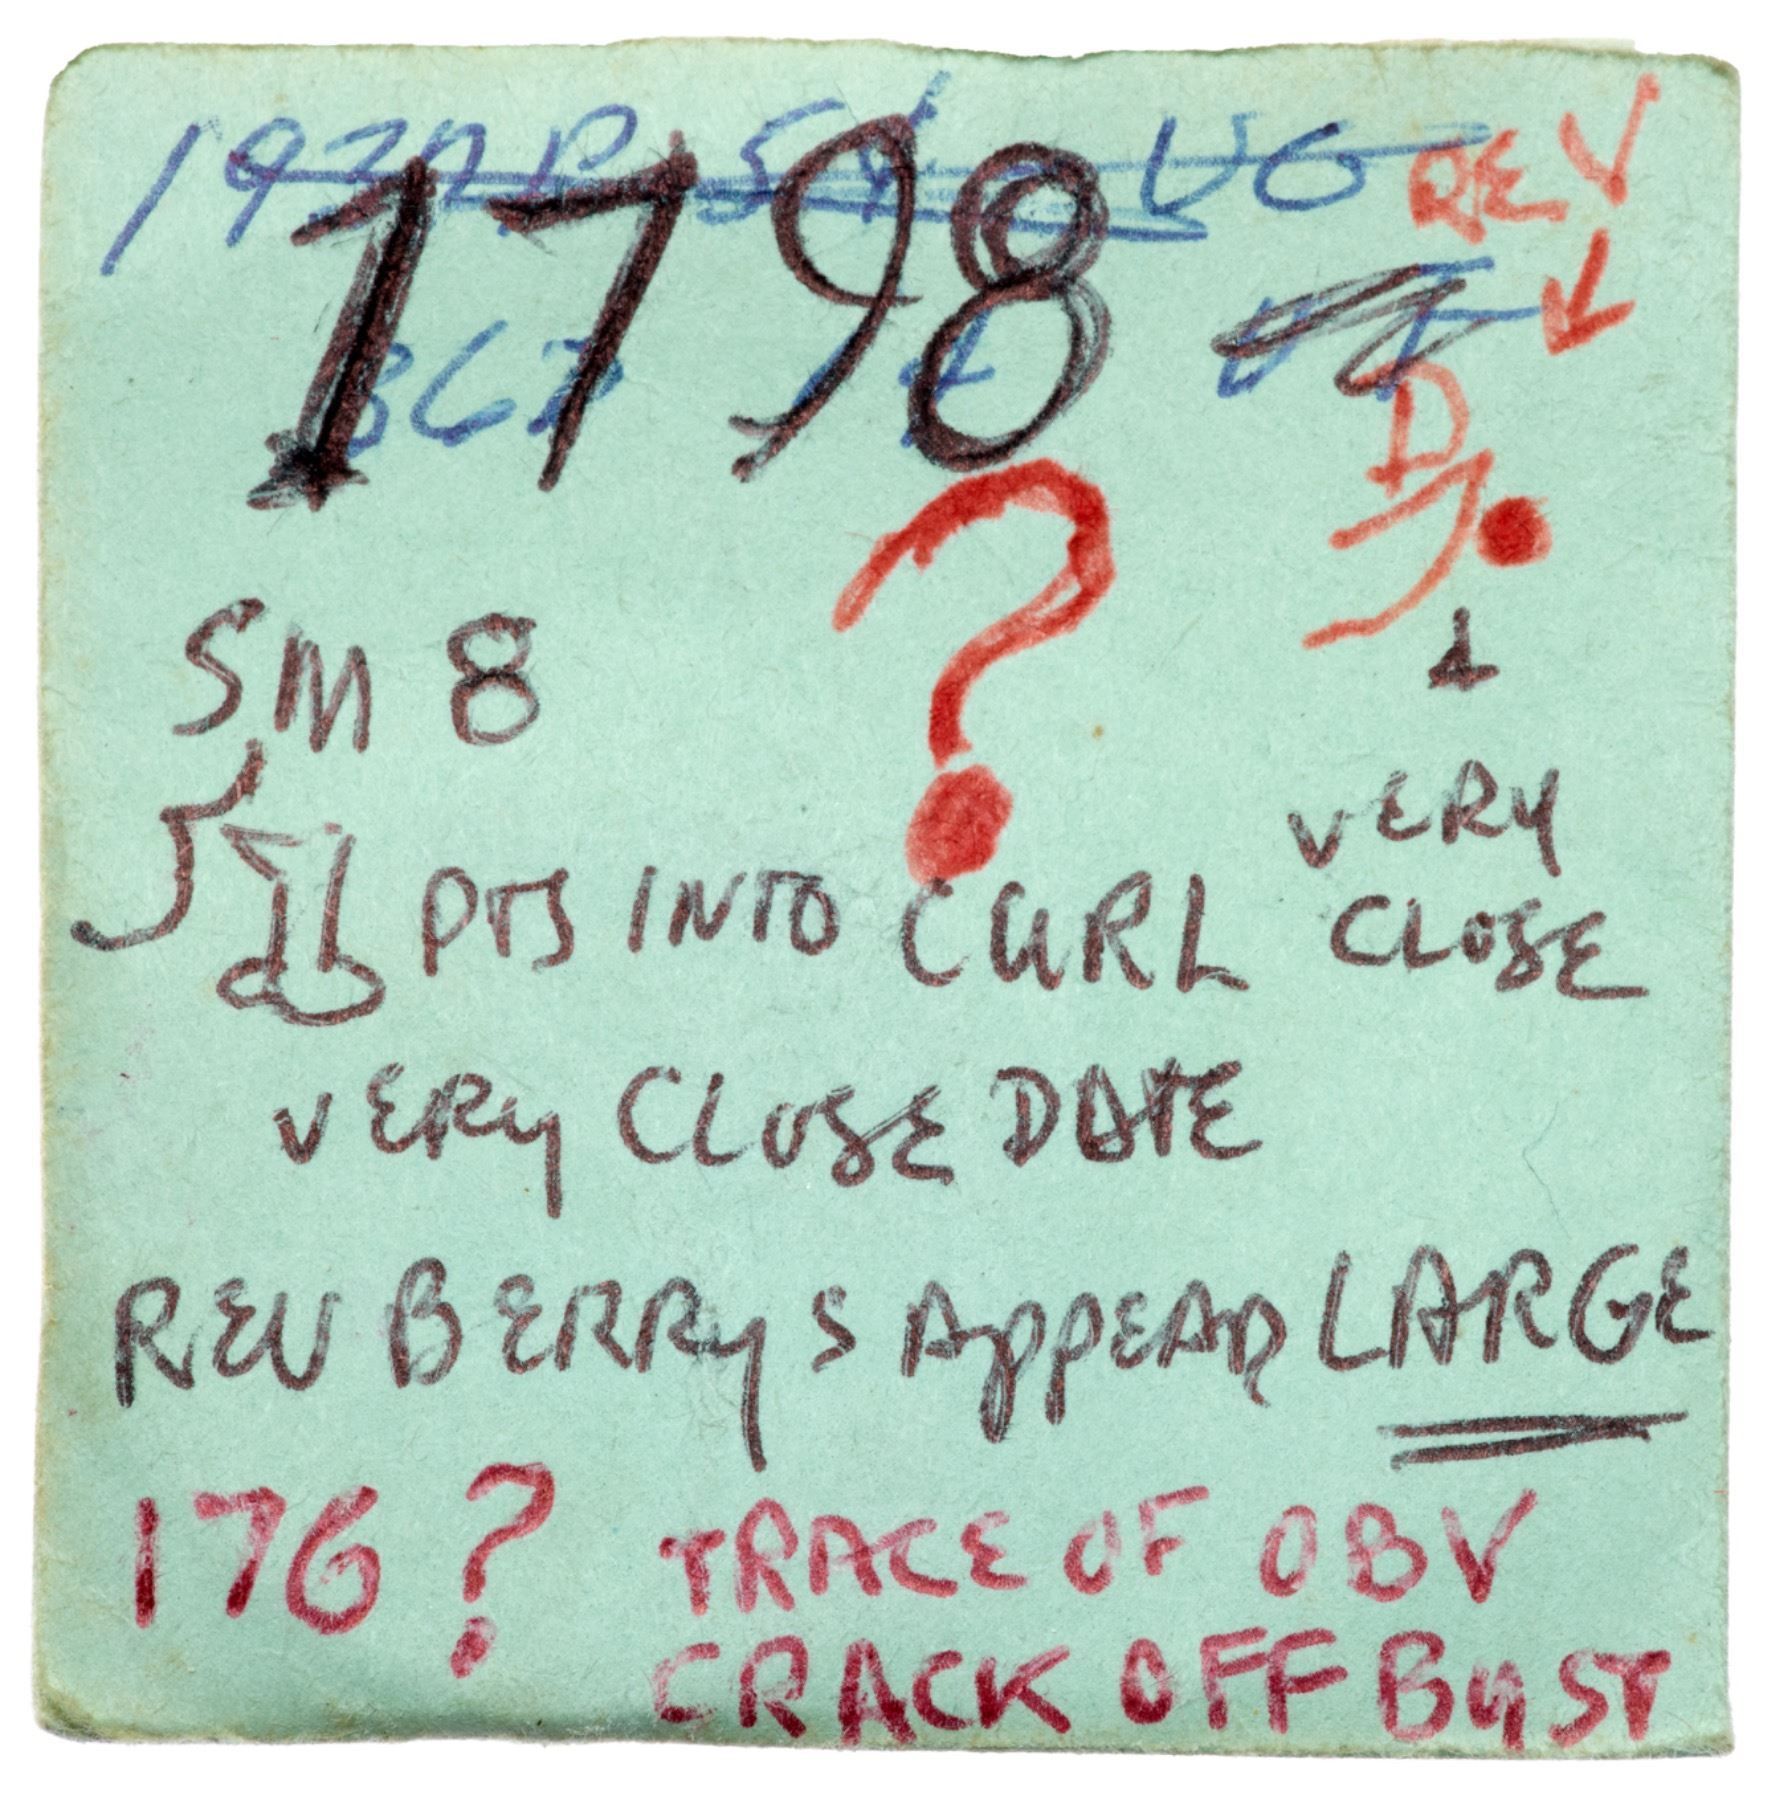 1798 VG REV
D
?
SM 8
1 PTS INTO CURL
VERY
CLOSE
VERY CLOSE DATE
REV BERRYS APPEAR LARGE
176? TRACE OF OBV
CRACK OFF BUST